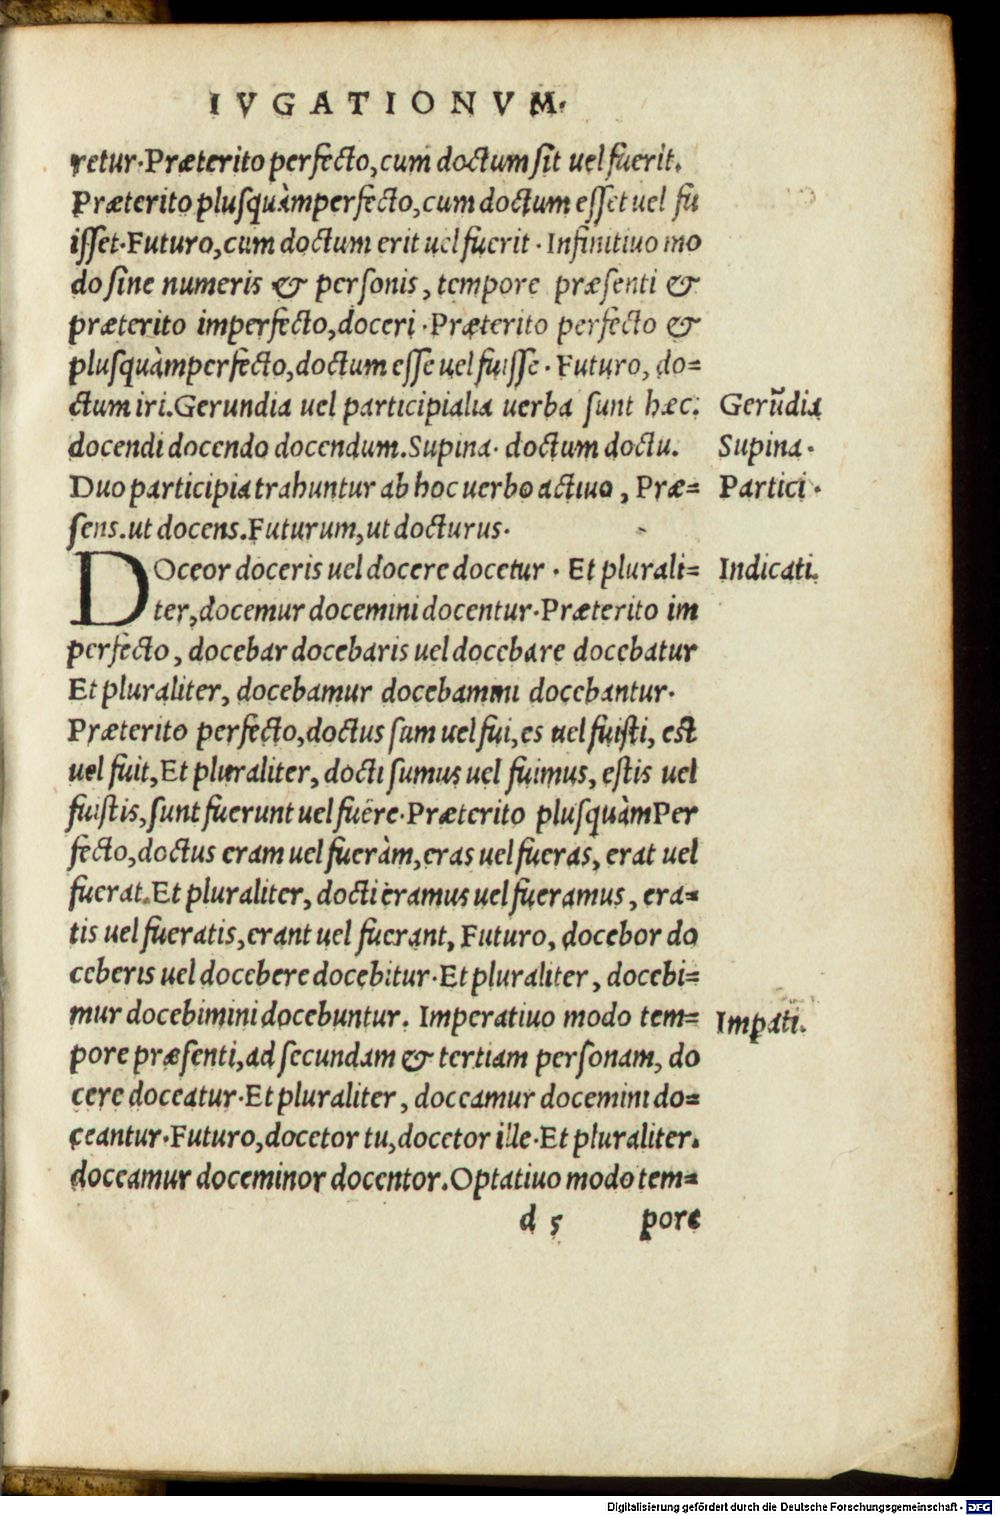 IVGATIONVM.
retur. Præterito perfecto, cum doctum sit uel fuerit.
Præterito plusquàmperfecto, cum doctum esset uel fu
isset. Futuro, cum doctum erit uel fuerit. Infinitiuo mo
do sine numeris & personis, tempore præsenti &
præterito imperfecto, doceri. Præterito perfecto &
plusquàmperfecto, doctum esse uel fuisse. Futuro, do=
ctum iri. Gerundia uel participialia uerba sunt hæc. Gerūdia
docendi docendo docendum. Supina. doctum doctu. Supina.
Duo participia trahuntur ab hoc uerbo actiuo, Præ= Partici.
sens. ut docens. Futurum, ut docturus.
DOceor doceris uel docere docetur. Et plurali= Indicati.
ter, docemur docemini docentur. Præterito im
perfecto, docebar docebaris uel docebare docebatur
Et pluraliter, docebamur docebamini docebantur.
Præterito perfecto, doctus sum uel fui, es uel fuisti, est
uel fuit, Et pluraliter, docti sumus uel fuimus, estis uel
fuistis, sunt fuerunt uel fuêre. Præterito plusquàmPer
fecto, doctus eram uel fueràm, eras uel fueras, erat uel
fuerat. Et pluraliter, docti eramus uel fueramus, era=
tis uel fueratis, erant uel fuerant, Futuro, docebor do
ceberis uel docebere docebitur. Et pluraliter, docebi=
mur docebimini docebuntur. Imperatiuo modo tem= Impati.
pore præsenti, ad secundam & tertiam personam, do
cere doceatur. Et pluraliter, doceamur docemini do=
ceantur. Futuro, docetor tu, docetor ille. Et pluraliter.
doceamur doceminor docentor. Optatiuo modo tem=
d 5 pore
Digitalisierung gefördert durch die Deutsche Forschungsgemeinschaft - DFG